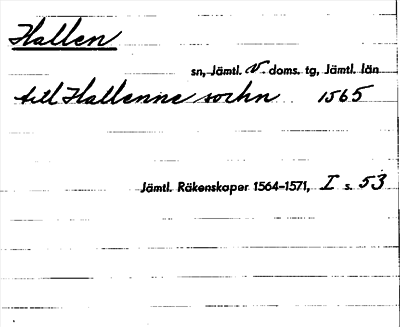 Hallen
sn, Jämtl. V. doms. tg, Jämtl. län
till Hallenne sockn 1565
Jämtl. Räkenskaper 1564-1571, I s. 53